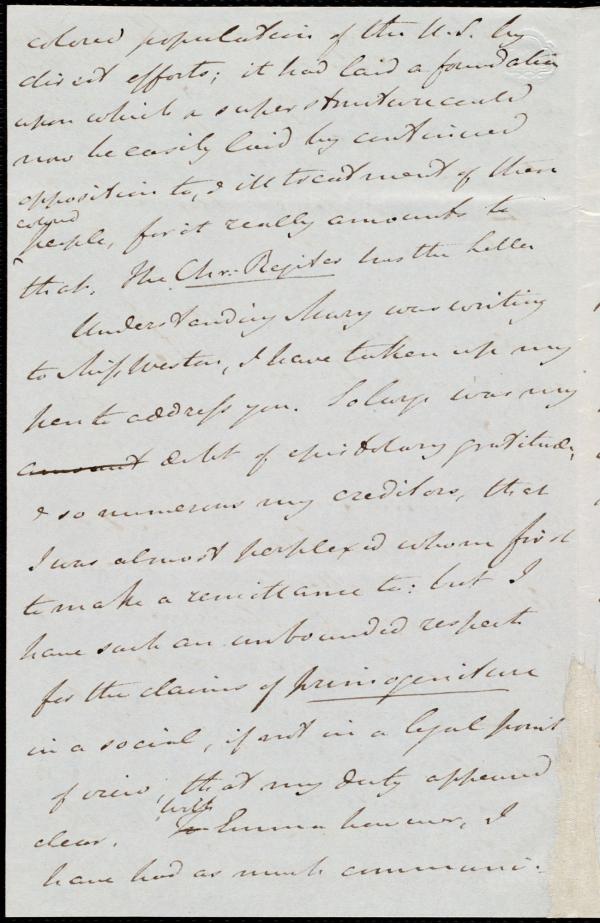 colored population of the U.S. by
direct efforts; it had laid a foundation
upon which a superstructure could
now be easily laid by continued
opposition to, & illtreatment of these
colored
people, for it really amounts to
that. The Chr. Register has the Letter
Understanding Mary was writing
to Miss Weston, I have taken up my
pen to address you. So large was my
amount debt of epistolary gratitude,
& so numerous my creditors, that
I was almost perplexed whom first
to make a remittance to: but I
have such an unbounded respect
for the claims of primogeniture
in a social, if not in a legal point
of view, that my duty appeared
with
clear. Emma however, I
have had as much communi-